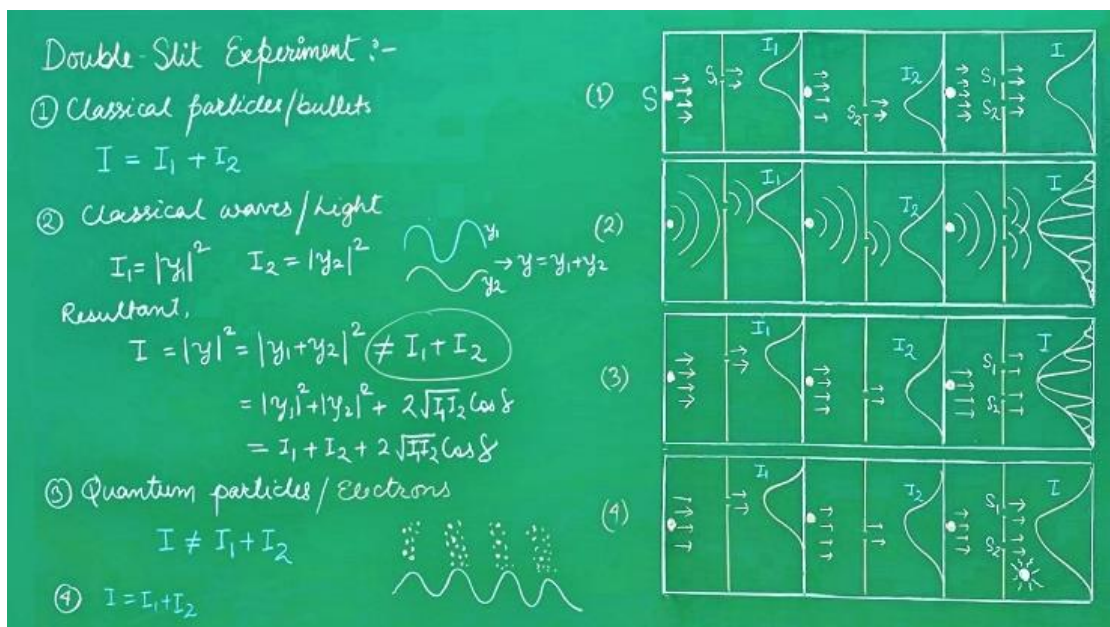 Double-Slit Experiment :-
① Classical particles/bullets
I = I₁ + I₂
② Classical waves/Light
I₁ = |y₁|² I₂ = |y₂|²
y₁
y₂
→ y = y₁+y₂
Resultant,
I = |y|² = |y₁+y₂|² ≠ I₁ + I₂
= |y₁|² + |y₂|² + 2√I₁I₂ Cos δ
= I₁ + I₂ + 2√I₁I₂ Cos δ
③ Quantum particles/Electrons
I ≠ I₁ + I₂
④ I = I₁+I₂
(1) S S₁ I₁ S₂ I₂ S₁ S₂ I
(2) I₁ I₂ I
(3) I₁ I₂ S₁ S₂ I
(4) I₁ I₂ S₁ S₂ I